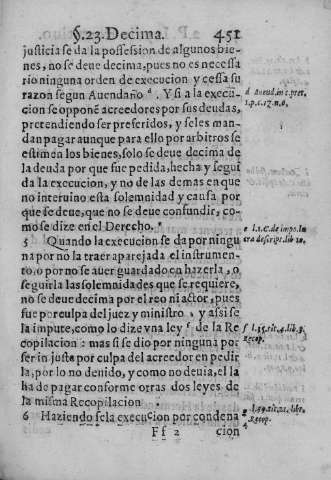 §.23. Decima. 451
justicia se da la possession de algunos bie-
nes, no se deue decima, pues no es necessa
rio ninguna orden de execucion y cessa su
razon segun Auendaño d. Y si a la execu-
cion se opponē acreedores por sus deudas,
pretendiendo ser preferidos, y se les man-
dan pagar aunque para ello por arbitros se
estimen los bienes, solo se deue decima de
la deuda por que fue pedida, hecha y segui
da la execucion, y no de las demas en que
no interuino esta solemnidad y causa por
que se deue, que no se deue confundir, co-
mo se dize en el Derecho. e
5 Quando la execucion se da por ningu
na por nō la traer aparejada el instrumen-
to, o por no se auer guardado en hazerla, o
seguirla las solemnidades que se requiere,
no se deue decima por el reo ni actor, pues
fue por culpa del juez y ministro y assi se
le impute, como lo dize vna ley f de la Re
copilacion: mas si se dio por ninguna por
ser injusta por culpa del acreedor en pedir
la, por lo no deuido, y como no deuia, el la
ha de pagar conforme otras dos leyes de
la misma Recopilacion g
6 Haziendo se la execucion por condena
Ff 2 cion
d Auend. in c. pret.
1. p. c. 17. n. 6.
e l. 1. C. de imps. lu
cra descript. lib 10.
f l. 15. tit. 4. lib. 3.
Recop.
g l. 19. tit. 21. lib.
4. Recop.